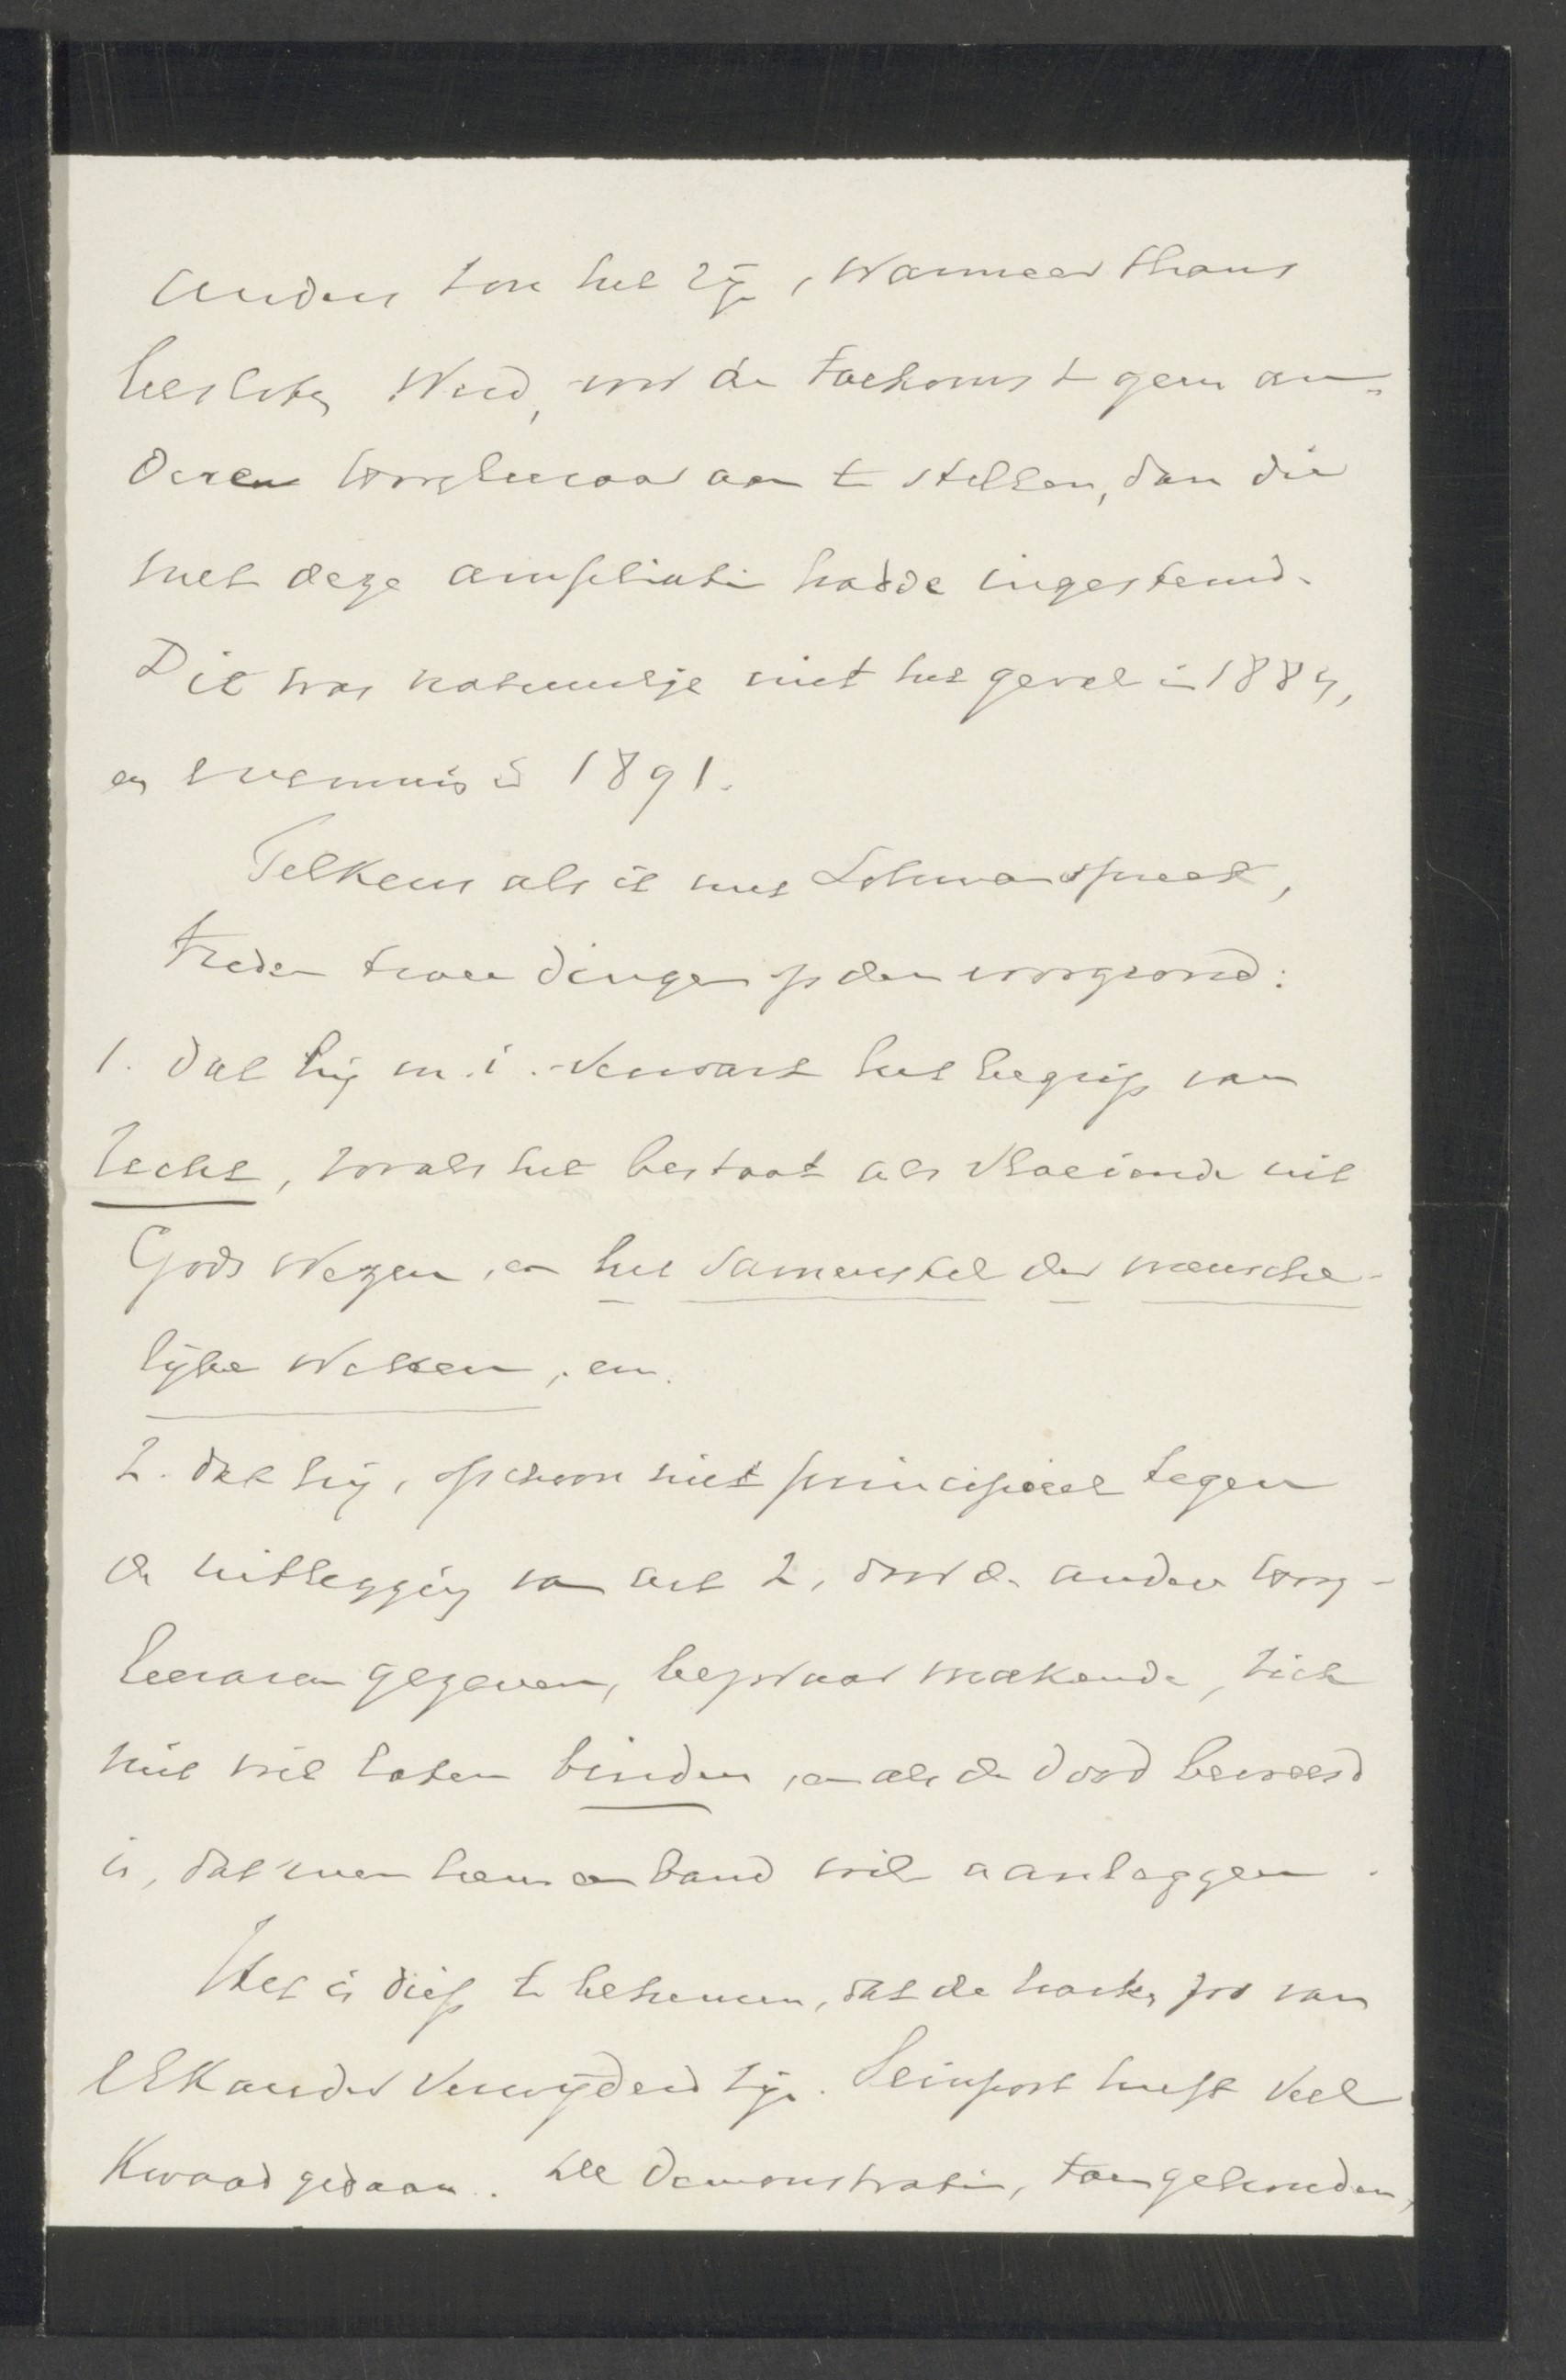 Anders zou het zijn, wanneer thans
besloten werd, voor de toekomst geen an-
deren hoogleeraar aan te stellen, dan die
met deze ampliatie hadde ingestemd.
Dit was natuurlijk niet het geval in 1884,
en evenmin in 1891.
Telkens als ik met Lohman spreek,
treden twee dingen op den voorgrond:
1. dat hij m.i. verwart het begrip van
recht, zooals het bestaat als vloeiende uit
Gods Wezen, en het samenstel der mensche-
lijke wetten, en.
2. dat hij, ofschoon niet principieel tegen
de uitlegging van art 2, door de andere hoog-
leeraren gegeven, bezwaar makende, zich
niet wil laten binden, en als de dood bevreesd
is, dat men hem een band wil aanleggen.
Het is diep te betreuren, dat de harten zoo van
elkander verwijderd zijn. Seinpost heeft veel
kwaad gedaan. De demonstratie, toen gehouden,